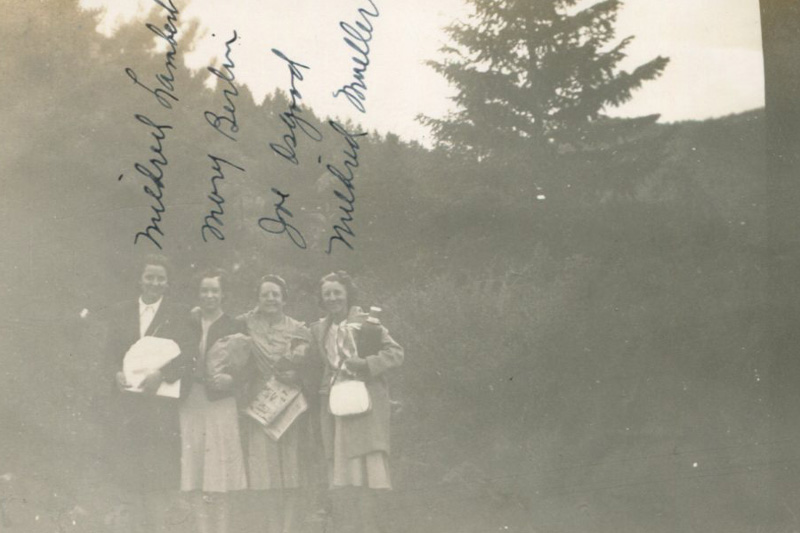 Mildred Lambert
Mary Berlin
Joe Osgood
Mildred Mueller